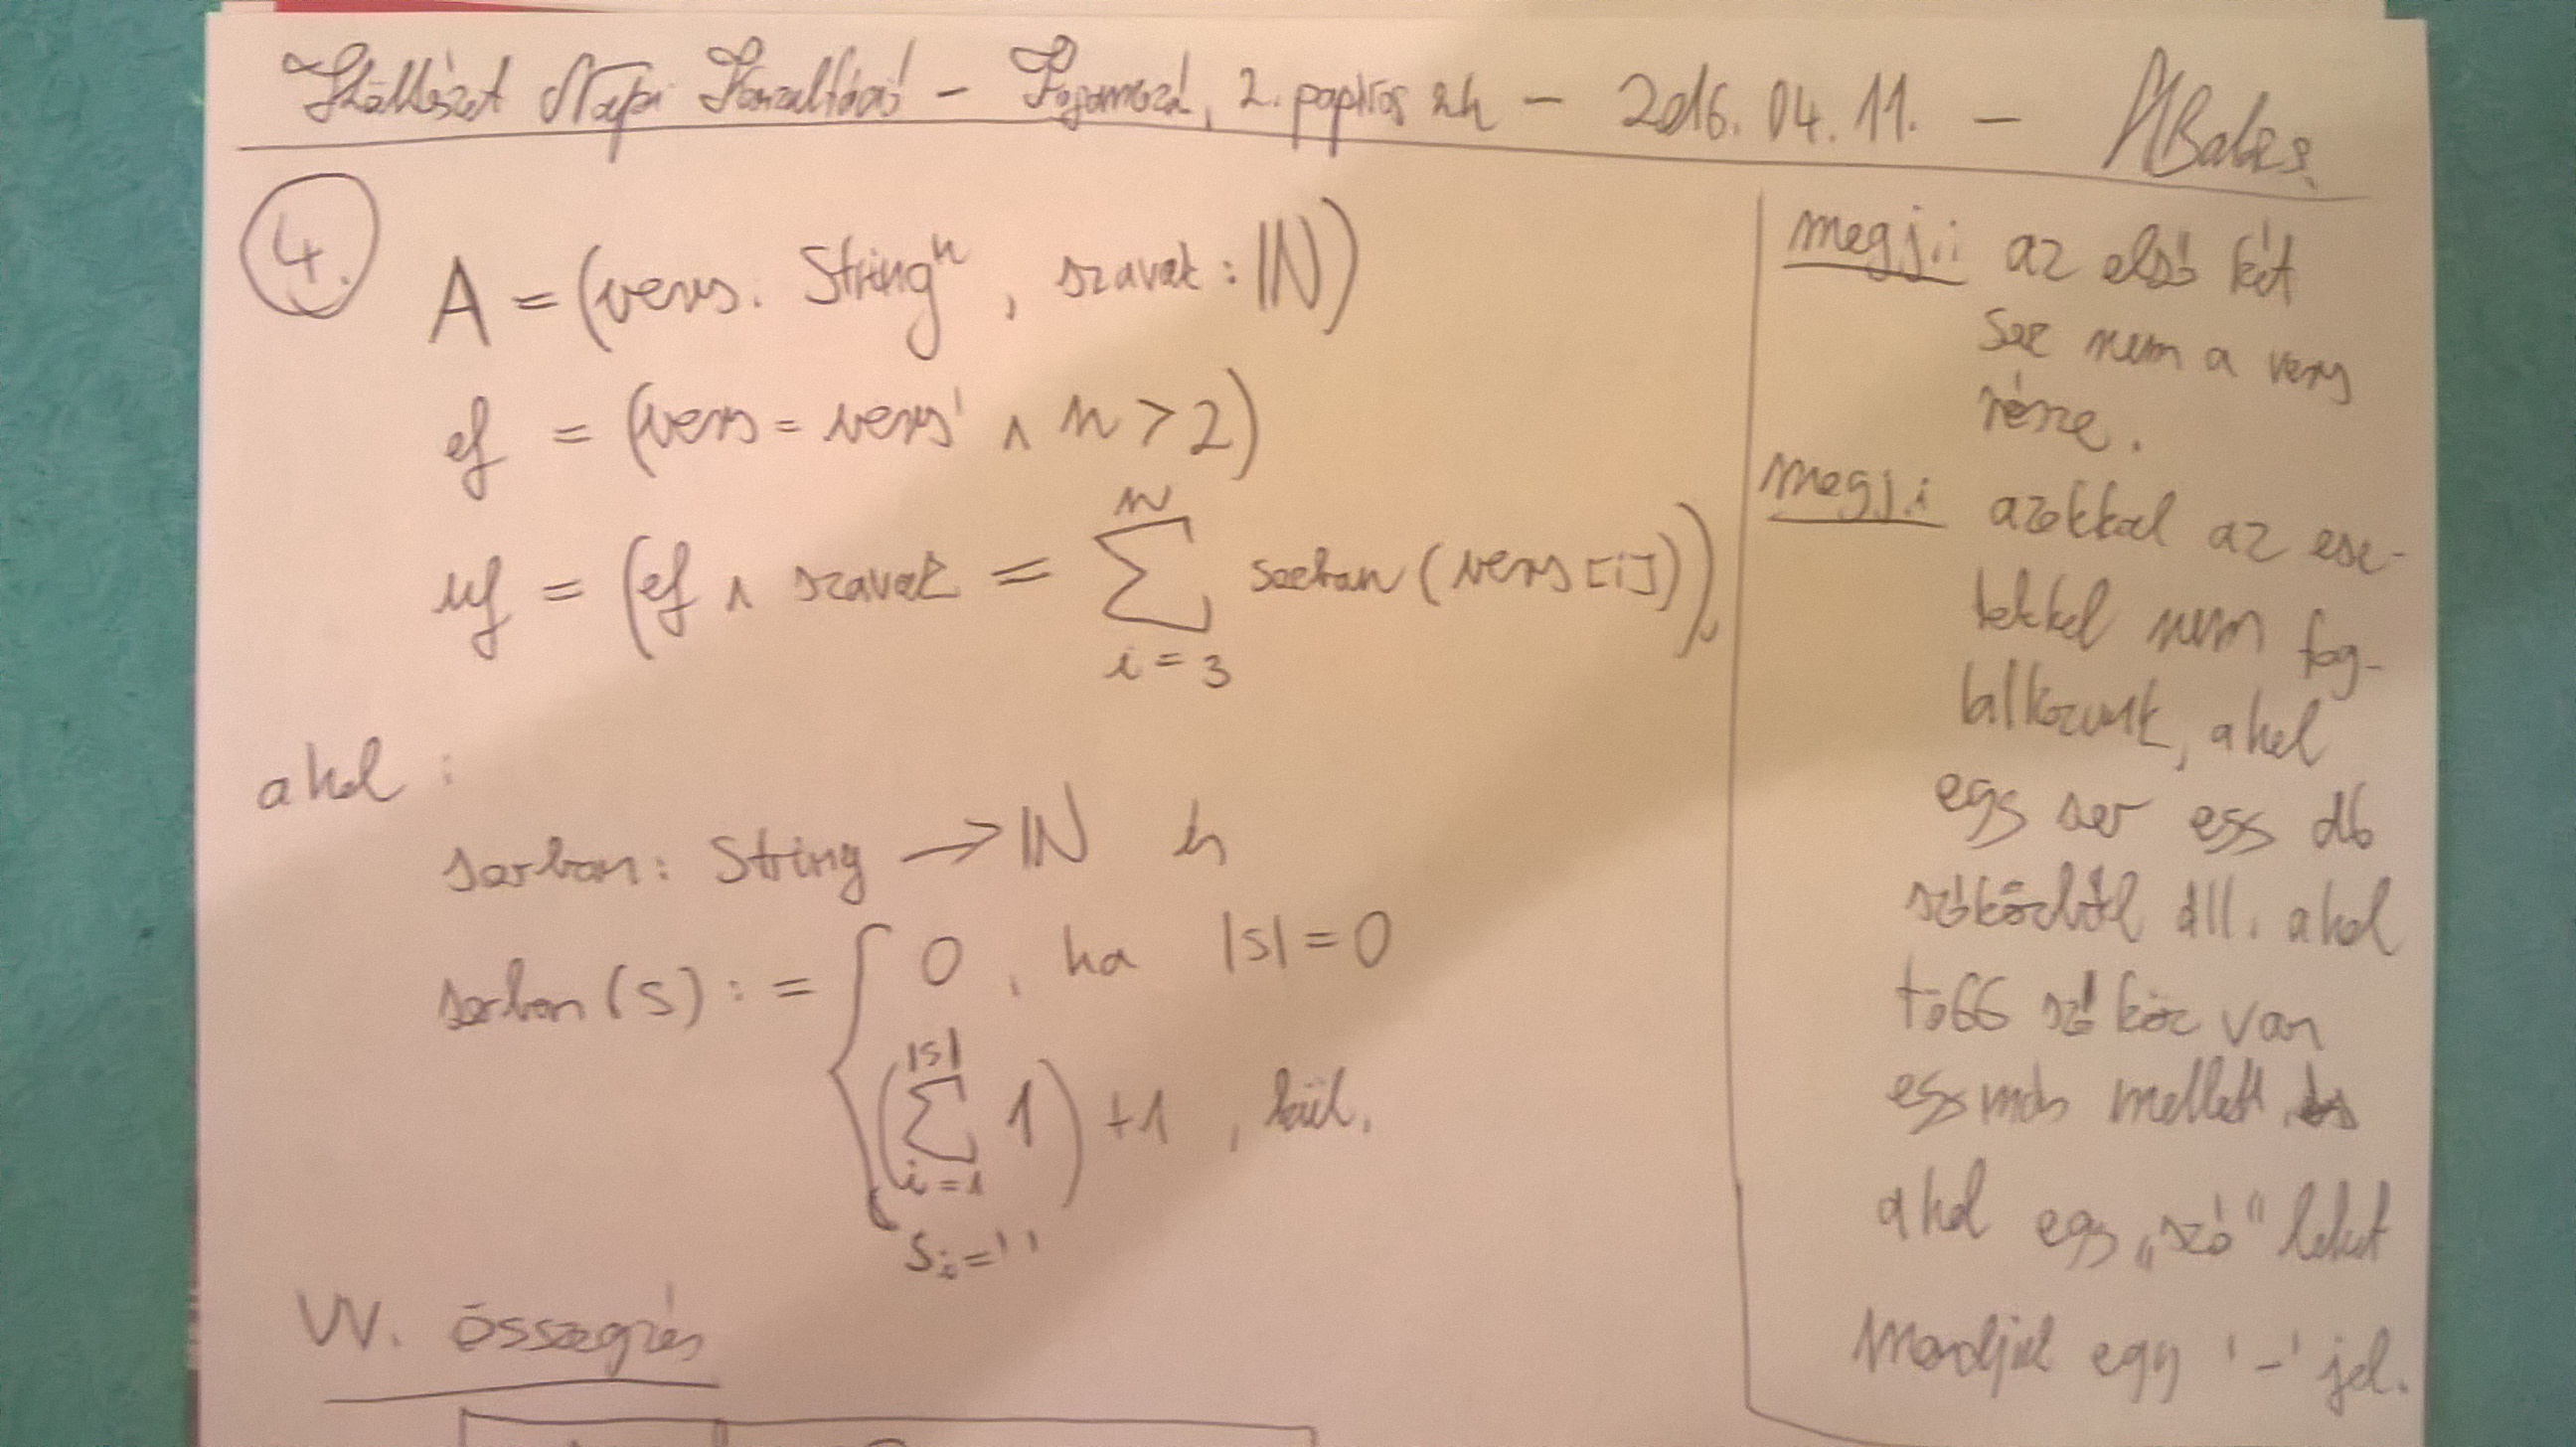 Napi Konzultáció - Progamozá, 2. papíros zh - 2016. 04. 11. -
4.
A = (vers: Stringⁿ, szavak: ℕ)
ef = (vers = vers' ∧ n > 2)
uf = (ef ∧ szavak = ∑_{i=3}^{n} sorban(vers[i])),
ahol:
sorban: String → ℕ és
sorban(s) := { 0, ha |s| = 0
(∑_{i=1, s_i=' '}^{|s|} 1) + 1, kül.
VV. összegzés
megj.: az első két
sor nem a vers
része.
megj.: azokkal az ese-
tekkel nem fog-
lalkozunk, ahol
egy sor egy db
szóközből áll, ahol
több szóköz van
egymás mellett,
ahol egy „szó" lehet
mondjuk egy '-' jel.